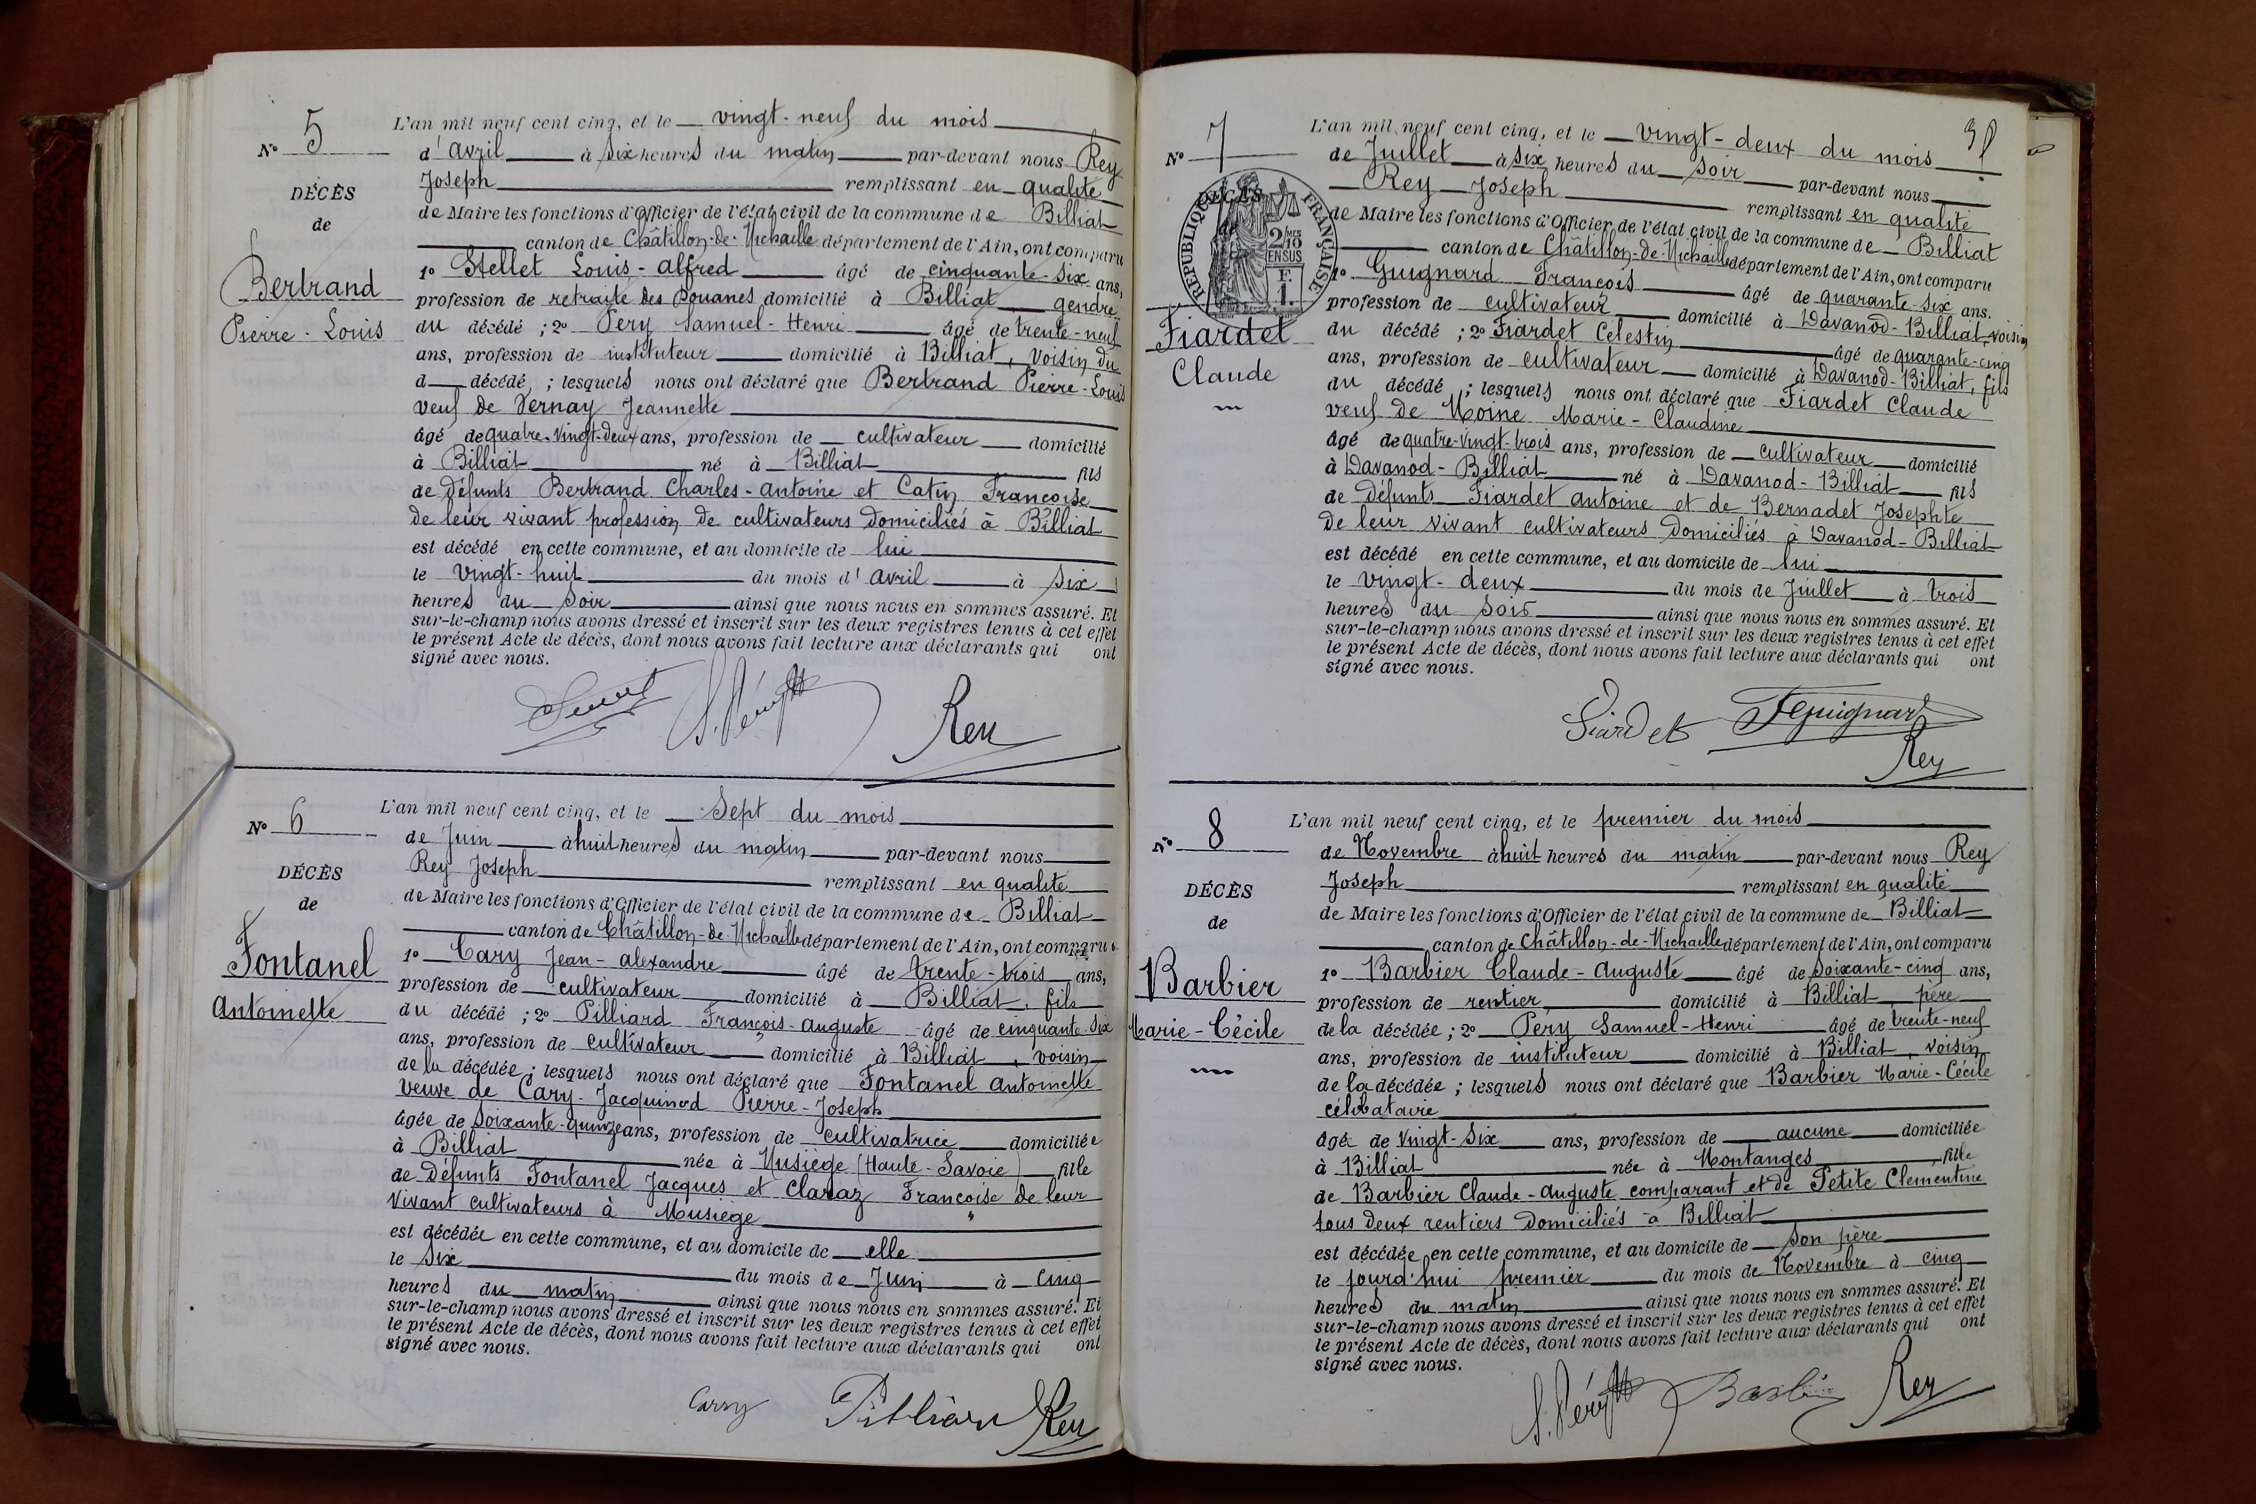 N° 5
DÉCÈS
de
Bertrand
Pierre-Louis
L'an mil neuf cent cinq, et le vingt-neuf du mois
d'avril à six heures du matin par-devant nous Rey
Joseph remplissant en qualité
de Maire les fonctions d'Officier de l'état civil de la commune de Billiat
canton de Châtillon-de-Michaille département de l'Ain, ont comparu
1° Stellet Louis-alfred âgé de cinquante-six ans,
profession de retraité des Douanes domicilié à Billiat gendre
du décédé ; 2° Pery Samuel-Henri âgé de trente-neuf
ans, profession de instituteur domicilié à Billiat, voisin du
d décédé ; lesquels nous ont déclaré que Bertrand Pierre-Louis
veuf de Vernay Jeannette
âgé de quatre-vingt-deux ans, profession de cultivateur domicilié
à Billiat né à Billiat fils
de défunts Bertrand Charles-antoine et Catin Françoise
de leur vivant profession de cultivateurs domiciliés à Billiat
est décédé en cette commune, et au domicile de lui
le vingt-huit du mois d'avril à six
heures du soir ainsi que nous nous en sommes assuré. Et
sur-le-champ nous avons dressé et inscrit sur les deux registres tenus à cet effet
le présent Acte de décès, dont nous avons fait lecture aux déclarants qui ont
signé avec nous.
S. Péry Rey
N° 6
DÉCÈS
de
Fontanel
Antoinette
L'an mil neuf cent cinq, et le sept du mois
de Juin à huit heures du matin par-devant nous
Rey Joseph remplissant en qualité
de Maire les fonctions d'Officier de l'état civil de la commune de Billiat
canton de Châtillon-de-Michaille département de l'Ain, ont comparu
1° Cary Jean-alexandre âgé de trente-trois ans,
profession de cultivateur domicilié à Billiat, fils
du décédé ; 2° Pilliard François-auguste âgé de cinquante-six
ans, profession de cultivateur domicilié à Billiat, voisin
de la décédée ; lesquels nous ont déclaré que Fontanel antoinette
veuve de Cary-Jacquinod Pierre-Joseph
âgée de soixante-quinze ans, profession de cultivatrice domiciliée
à Billiat née à Musiège (Haute-Savoie) fille
de défunts Fontanel Jacques et Claraz Françoise de leur
vivant cultivateurs à Musiège
est décédée en cette commune, et au domicile de elle
le six du mois de Juin à cinq
heures du matin ainsi que nous nous en sommes assuré. Et
sur-le-champ nous avons dressé et inscrit sur les deux registres tenus à cet effet
le présent Acte de décès, dont nous avons fait lecture aux déclarants qui ont
signé avec nous.
Cary Pilliard Rey
38
N° 7
DÉCÈS
RÉPUBLIQUE FRANÇAISE
2/10 MES
EN SUS
F.
1.
Fiardet
Claude
L'an mil neuf cent cinq, et le vingt-deux du mois
de Juillet à six heures du soir par-devant nous
Rey Joseph remplissant en qualité
de Maire les fonctions d'Officier de l'état civil de la commune de Billiat
canton de Châtillon-de-Michaille département de l'Ain, ont comparu
1° Guignard François âgé de quarante-six ans.
profession de cultivateur domicilié à Davanod-Billiat, voisin
du décédé ; 2° Fiardet Celestin âgé de quarante-cinq
ans, profession de cultivateur domicilié à Davanod-Billiat, fils
du décédé ; lesquels nous ont déclaré que Fiardet Claude
veuf de Moine Marie-Claudine
âgé de quatre-vingt-trois ans, profession de cultivateur domicilié
à Davanod-Billiat né à Davanod-Billiat fils
de défunts Fiardet antoine et de Bernadet Josephte
de leur vivant cultivateurs domiciliés à Davanod-Billiat
est décédé en cette commune, et au domicile de lui
le vingt-deux du mois de Juillet à trois
heures du soir ainsi que nous nous en sommes assuré. Et
sur-le-champ nous avons dressé et inscrit sur les deux registres tenus à cet effet
le présent Acte de décès, dont nous avons fait lecture aux déclarants qui ont
signé avec nous.
Fiardet Fguignard
Rey
N° 8
DÉCÈS
de
Barbier
Marie-Cécile
L'an mil neuf cent cinq, et le premier du mois
de Novembre à huit heures du matin par-devant nous Rey
Joseph remplissant en qualité
de Maire les fonctions d'Officier de l'état civil de la commune de Billiat
canton de Châtillon-de-Michaille département de l'Ain, ont comparu
1° Barbier Claude-auguste âgé de soixante-cinq ans,
profession de rentier domicilié à Billiat, père
de la décédée ; 2° Péry Samuel-Henri âgé de trente-neuf
ans, profession de instituteur domicilié à Billiat, voisin
de la décédée ; lesquels nous ont déclaré que Barbier Marie-Cécile
célibataire
âgée de vingt-six ans, profession de aucune domiciliée
à Billiat née à Montanges, fille
de Barbier Claude-auguste comparant et de Petite Clémentine
tous deux rentiers domiciliés à Billiat
est décédée en cette commune, et au domicile de son père
le jourd'hui premier du mois de Novembre à cinq
heures du matin ainsi que nous nous en sommes assuré. Et
sur-le-champ nous avons dressé et inscrit sur les deux registres tenus à cet effet
le présent Acte de décès, dont nous avons fait lecture aux déclarants qui ont
signé avec nous.
S. Péry Barbier Rey